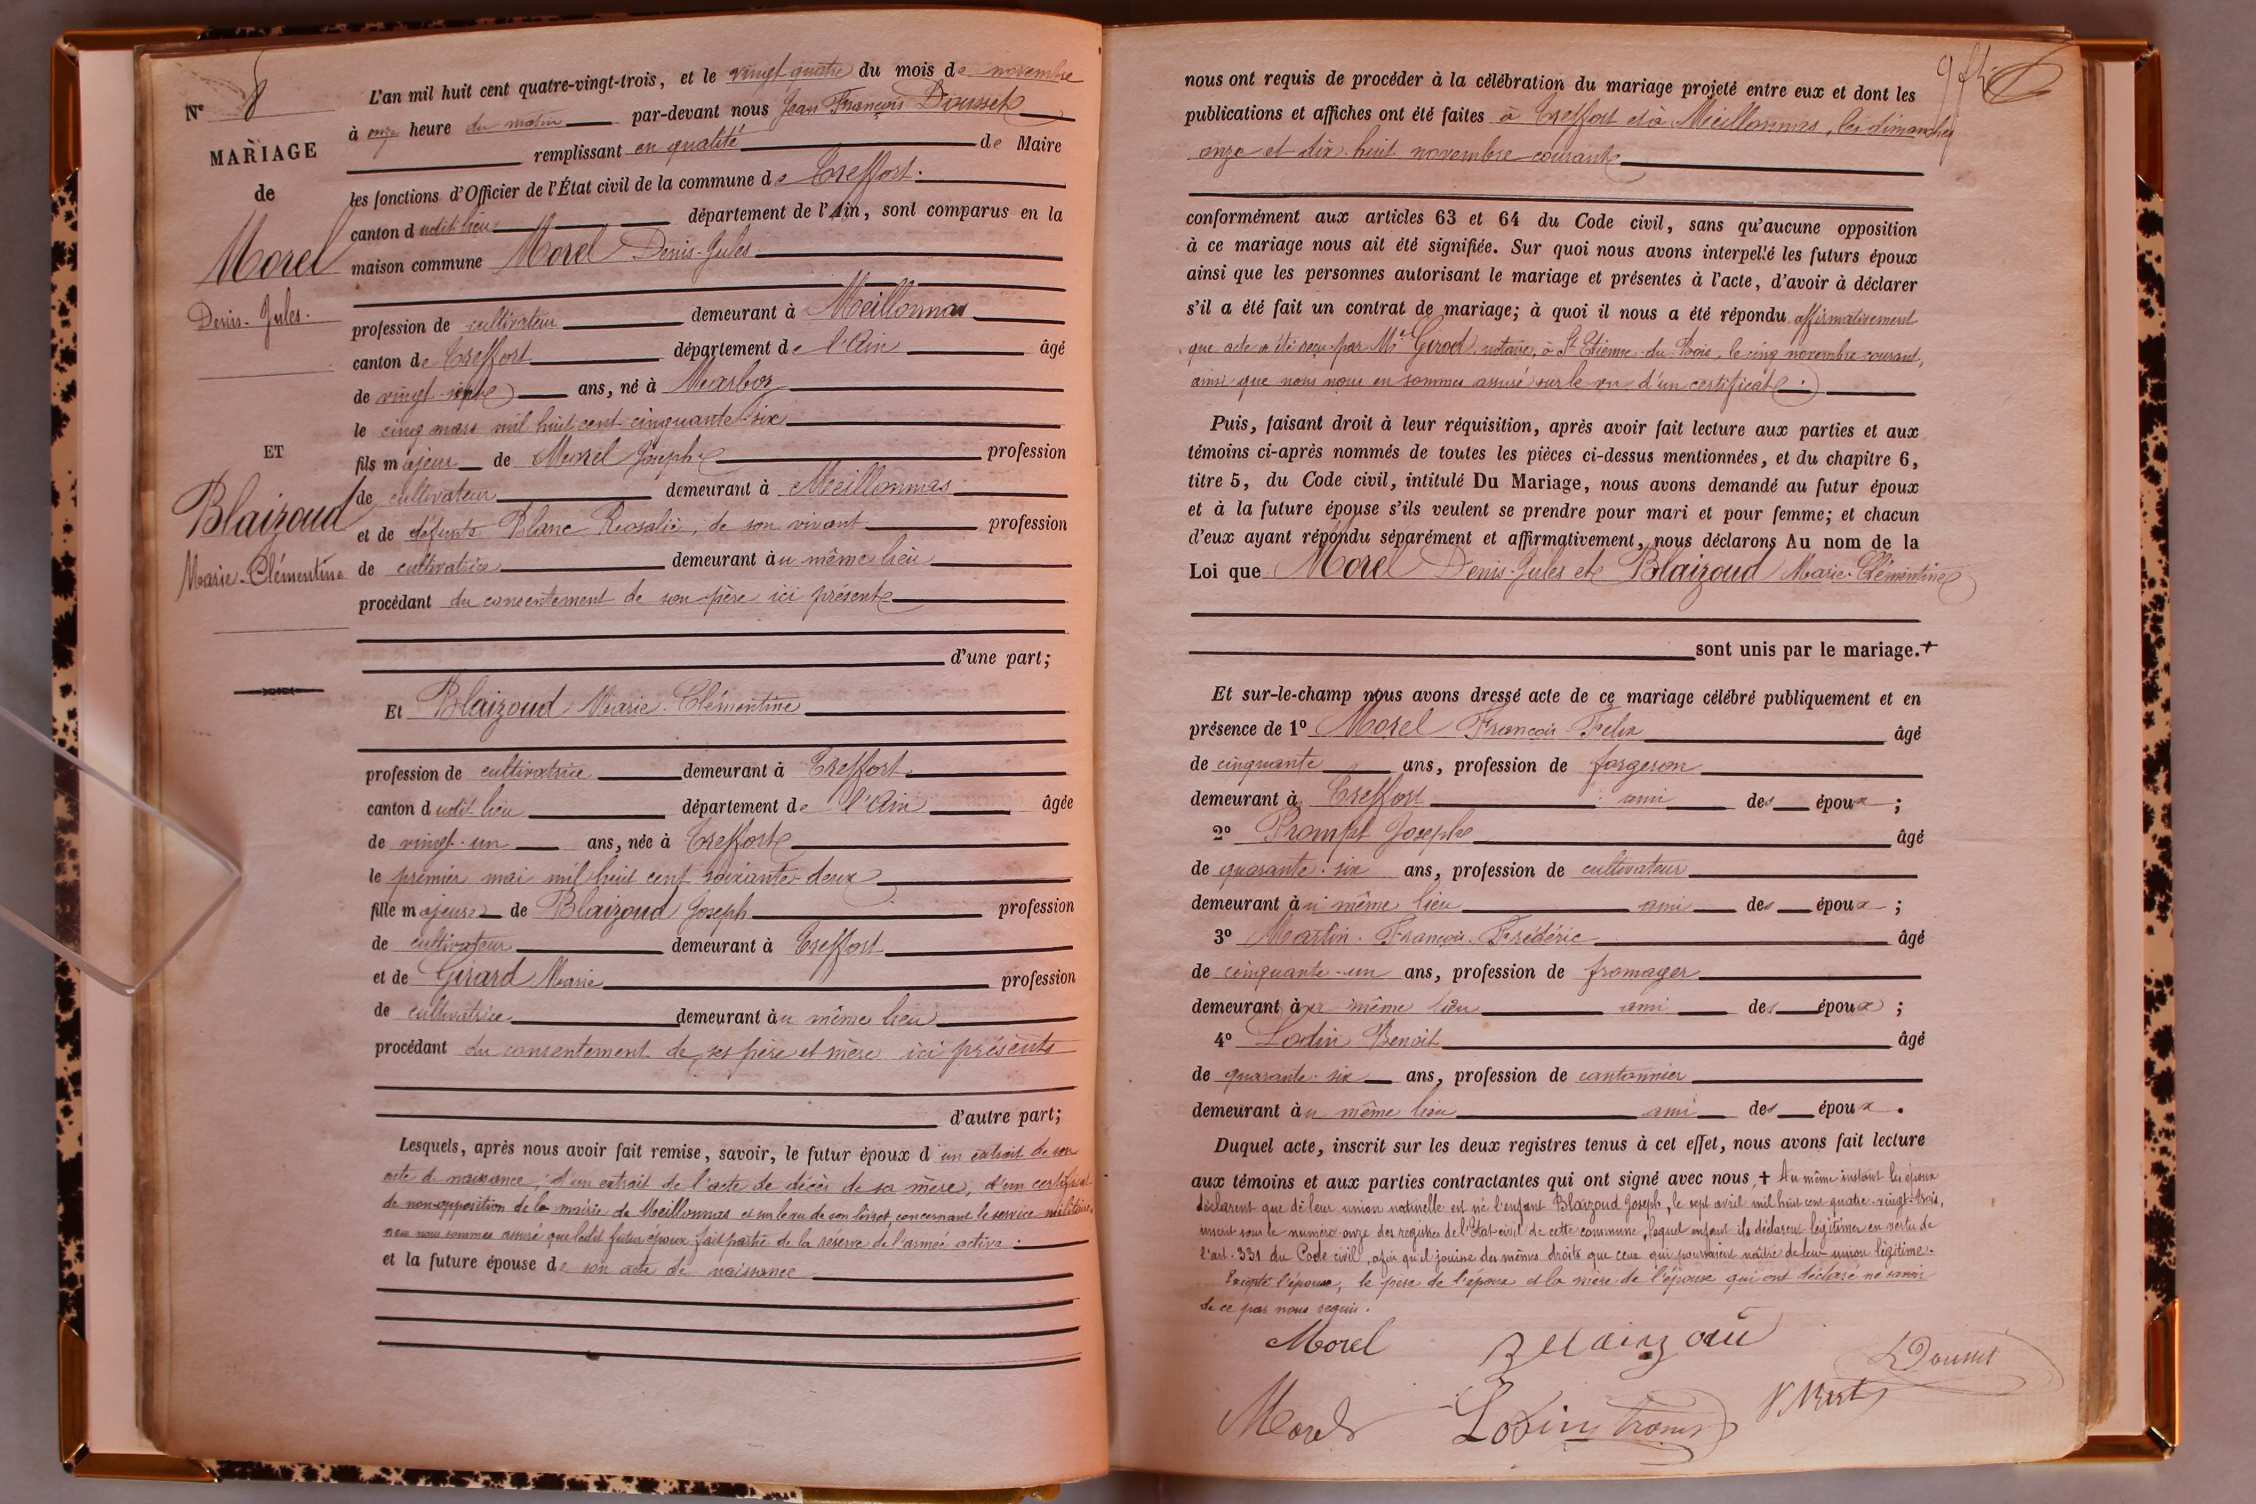 N° 8
MARIAGE
de
Morel
Denis-Jules.
ET
Blaizoud
Marie-Clémentine
L'an mil huit cent quatre-vingt-trois, et le vingt quatre du mois de novembre
à onze heure du matin par-devant nous Jean François Dousset
remplissant en qualité de Maire
les fonctions d'Officier de l'État civil de la commune de Treffort.
canton dudit lieu département de l'Ain, sont comparus en la
maison commune Morel Denis-Jules
profession de cultivateur demeurant à Meillonnas
canton de Treffort département de l'Ain âgé
de vingt-sept ans, né à Marboz
le cinq mars mil huit cent cinquante-six
fils majeur de Morel Joseph profession
de cultivateur demeurant à Meillonnas
et de défunte Blanc Rosalie, de son vivant profession
de cultivatrice demeurant au même lieu
procédant du consentement de son père ici présent
d'une part;
Et Blaizoud Marie-Clémentine
profession de cultivatrice demeurant à Treffort.
canton dudit lieu département de l'Ain âgée
de vingt-un ans, née à Treffort
le premier mai mil huit cent soixante-deux
fille majeure de Blaizoud Joseph profession
de cultivateur demeurant à Treffort
et de Girard Marie profession
de cultivatrice demeurant au même lieu
procédant du consentement de ses père et mère ici présents
d'autre part;
Lesquels, après nous avoir fait remise, savoir, le futur époux d'un extrait de son
acte de naissance, d'un extrait de l'acte de décès de sa mère, d'un certificat
de non-opposition de la mairie de Meillonnas et sur le vu de son livret, concernant le service militaire,
nous nous sommes assuré que ledit futur époux fait partie de la réserve de l'armée active.
et la future épouse de son acte de naissance
nous ont requis de procéder à la célébration du mariage projeté entre eux et dont les
publications et affiches ont été faites à Treffort et à Meillonnas, les dimanches
onze et dix-huit novembre courant
conformément aux articles 63 et 64 du Code civil, sans qu'aucune opposition
à ce mariage nous ait été signifiée. Sur quoi nous avons interpellé les futurs époux
ainsi que les personnes autorisant le mariage et présentes à l'acte, d'avoir à déclarer
s'il a été fait un contrat de mariage; à quoi il nous a été répondu affirmativement
que acte a été reçu par Me Girod notaire, à St Etienne-du-Bois, le cinq novembre courant,
ainsi que nous nous en sommes assuré sur le vu d'un certificat.
Puis, faisant droit à leur réquisition, après avoir fait lecture aux parties et aux
témoins ci-après nommés de toutes les pièces ci-dessus mentionnées, et du chapitre 6,
titre 5, du Code civil, intitulé Du Mariage, nous avons demandé au futur époux
et à la future épouse s'ils veulent se prendre pour mari et pour femme; et chacun
d'eux ayant répondu séparément et affirmativement, nous déclarons Au nom de la
Loi que Morel Denis-Jules et Blaizoud Marie-Clémentine
sont unis par le mariage.+
Et sur-le-champ nous avons dressé acte de ce mariage célébré publiquement et en
présence de 1° Morel François-Felix âgé
de cinquante ans, profession de forgeron
demeurant à Treffort ami des époux;
2° Prompt Joseph âgé
de quarante-six ans, profession de cultivateur
demeurant au même lieu ami des époux;
3° Martin François Frédéric âgé
de cinquante-un ans, profession de fromager
demeurant au même lieu ami des époux;
4° Lodin Benoit âgé
de quarante-six ans, profession de cantonnier
demeurant au même lieu ami des époux.
Duquel acte, inscrit sur les deux registres tenus à cet effet, nous avons fait lecture
aux témoins et aux parties contractantes qui ont signé avec nous + Au même instant les époux
déclarent que de leur union naturelle est né l'enfant Blaizoud Joseph, le sept avril mil huit cent quatre-vingt-trois,
inscrit sous le numéro onze des registres de l'Etat civil de cette commune, lequel enfant ils déclarent légitimer en vertu de
l'art. 331 du Code civil, afin qu'il jouisse des mêmes droits que ceux qui pourraient naître de leur union légitime.
Excepté l'épouse, le père de l'époux et la mère de l'épouse qui ont déclaré ne savoir
de ce par nous requis.
Morel Blaizoud Dousset
Morel Lodin